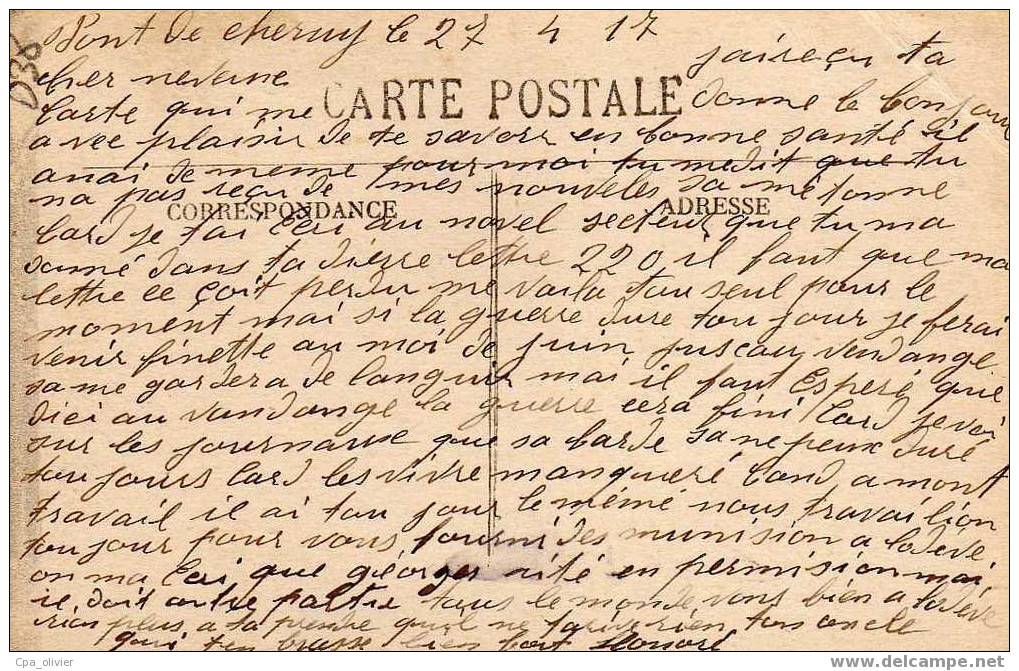 D38
Pont de cheruy le 27 4 17
cher neveue jaireçu ta
Carte qui me CARTE POSTALE donne le bonjour
avec plaisir de te savoir en bonne santé il
anai de meme pour moi tu me dit que tu
na pas reçu de mes nouveles sa me tonne
CORRESPONDANCE ADRESSE
Card je tai Ecri au novel secteur que tu ma
donné dans ta dierre lettre 220 il faut que ma
lettre ce çoit perdu me voila tou seul pour le
moment mai si la guerre dure tou jour je ferai
venir finette au moi de juin juscau vendange
sa me gardera de languir mai il faut Esperé que
dici au vandange la guerre cera fini Card je voi
sur les journaux que sa barde sa ne peux duré
toujours Card les vivre manqueré Cand a mont
travail il ai tou jour le mémé nous travailion
tou jour pour vous fourni des munision a la
on ma Ecri que géorges été en permision mai
doit aitre partir tous le monde vous bien a
rien plus a ta prendre quil ne rien ton oncle
qui ten brasse bien fort Honoré
Cpa_olivier http://www.delcampe.net